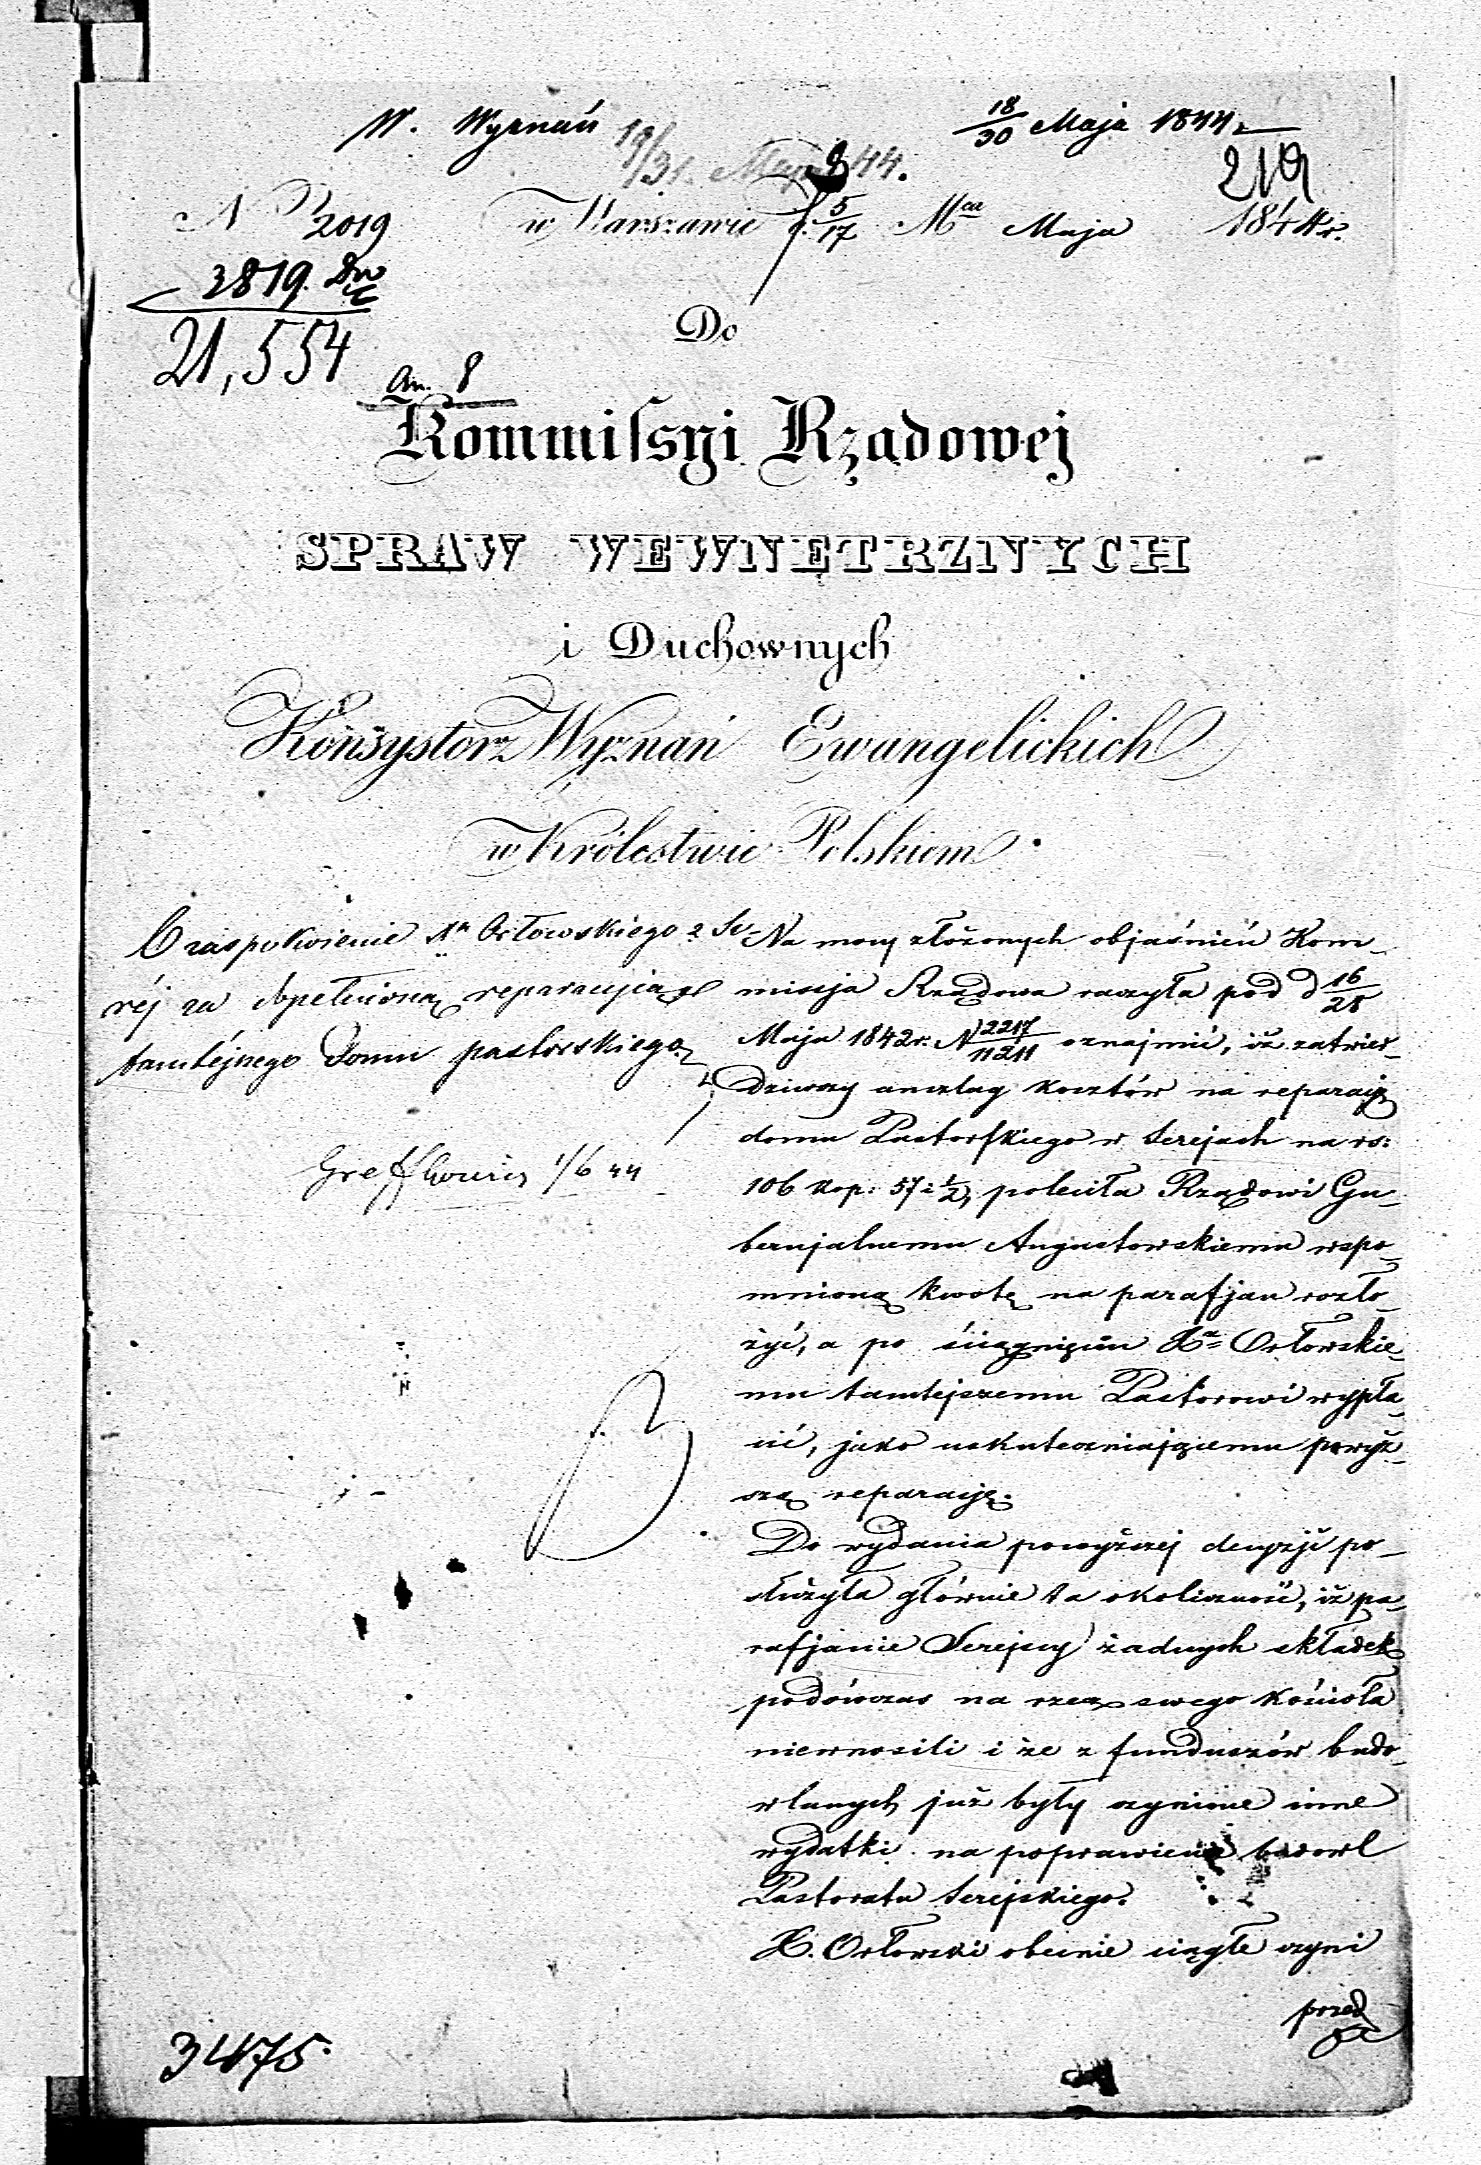 W. Wyznań
18/30 Maja 1844.
19/31. Maja 44.
219
N 2019
w Warszawie d. 5/17 Mca Maja 1844 r.
3819
21,554
Do
An. 8
Kommissyi Rządowej
SPRAW WEWNĘTRZNYCH
i Duchownych
Konsystorz Wyznań Ewangelickich
w Królestwie Polskiem
O zaspokoienie Xa Orłowskiego z Se-
réj za dopełnioną reparacyią
tamtéjszego Domu pastorskiego.
1/6 44
Na mocy złożonych objaśnień Kom-
missja Rządowa raczyła pod d 16/28
Maja 1842 r. N 2217/11211 oznajmić, iż zatwier-
dziwszy anszlag kosztów na reparacyą
domu Pastorskiego w Serejach na rs:
106 kop: 57 1/2, poleciła Rządowi Gu-
bernjalnemu Augustowskiemu wspo-
mnioną kwotę na parafjan rozło-
żyć, a po ściągnięciu Xa Orłowskie-
mu tamtejszemu Pastorowi wypła-
cić, jako uskuteczniającemu powyż-
szą reparacyę.
Do wydania powyższej decyzji po-
służyła głównie ta okoliczność, iż pa-
rafjanie Serejscy żadnych składek
podówczas na rzecz swego kościoła
niewnosili i że z funduszów budo-
wlanych już były czynione inne
wydatki na poprawienie budowl
Pastoratu Serejskiego.
X. Orłowski obecnie ciągłe czyni
przed
3475.